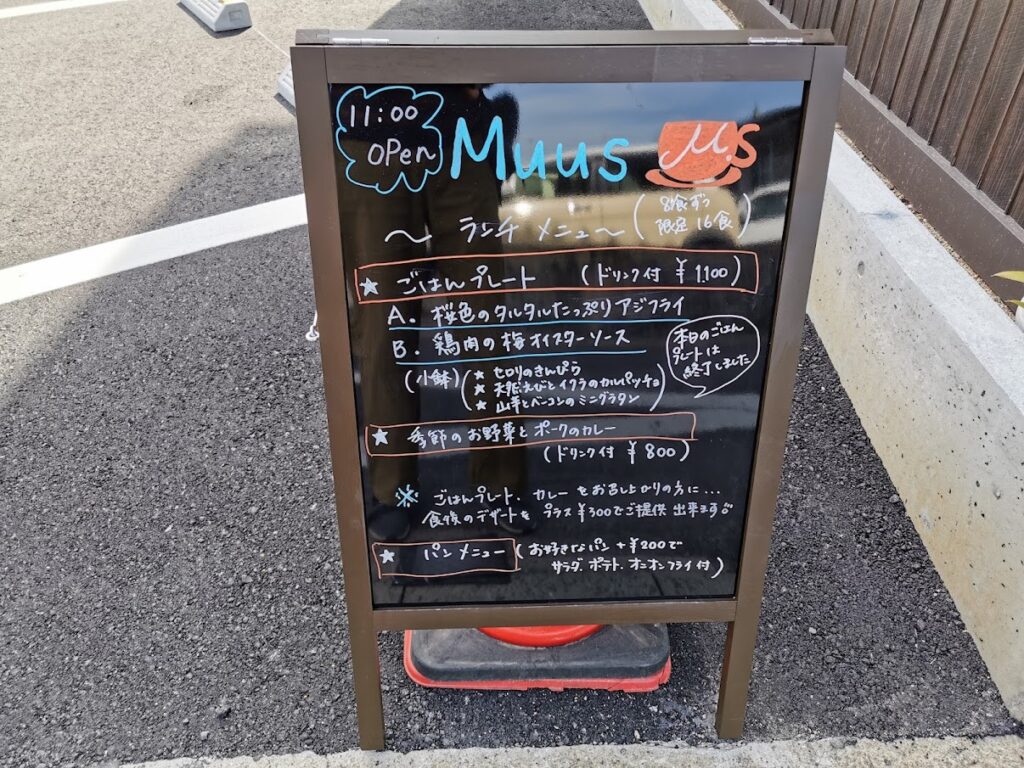 11:00
OPen
Muus
M.S
〜 ランチ メニュー 〜
(8食ずつ
限定 16食)
★ ごはんプレート (ドリンク付 ¥1,100)
A. 桜色のタルタルたっぷりアジフライ
B. 鶏肉の梅オイスターソース
(小鉢)
★ セロリのきんぴら
★ 天然えびとイクラのカルパッチョ
★ 山芋とベーコンのミニグラタン
本日のごはん
プレートは
終了しました
★ 季節のお野菜とポークのカレー
(ドリンク付 ¥800)
※ ごはんプレート、カレーをお召し上がりの方に…
食後のデザートを プラス¥300でご提供 出来ます
★ パンメニュー (お好きなパン+¥200で
サラダ、ポテト、オニオンフライ付)